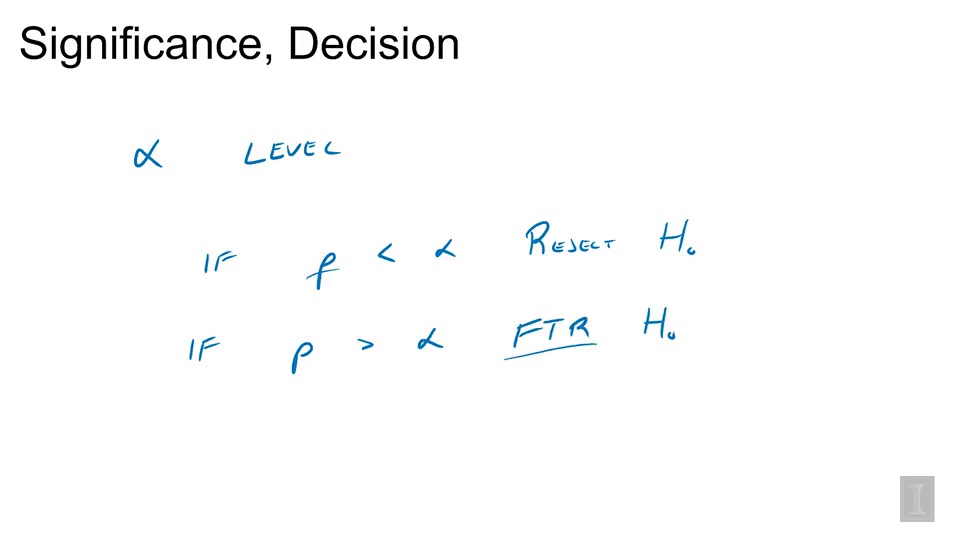 Significance, Decision
α LEVEL
IF p < α REJECT H₀
IF p > α FTR H₀
I